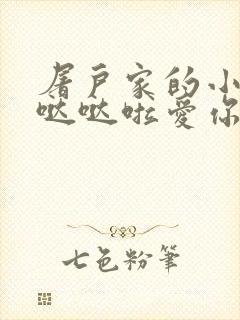 屠户家的小
哒哒啦爱你
七色粉筆